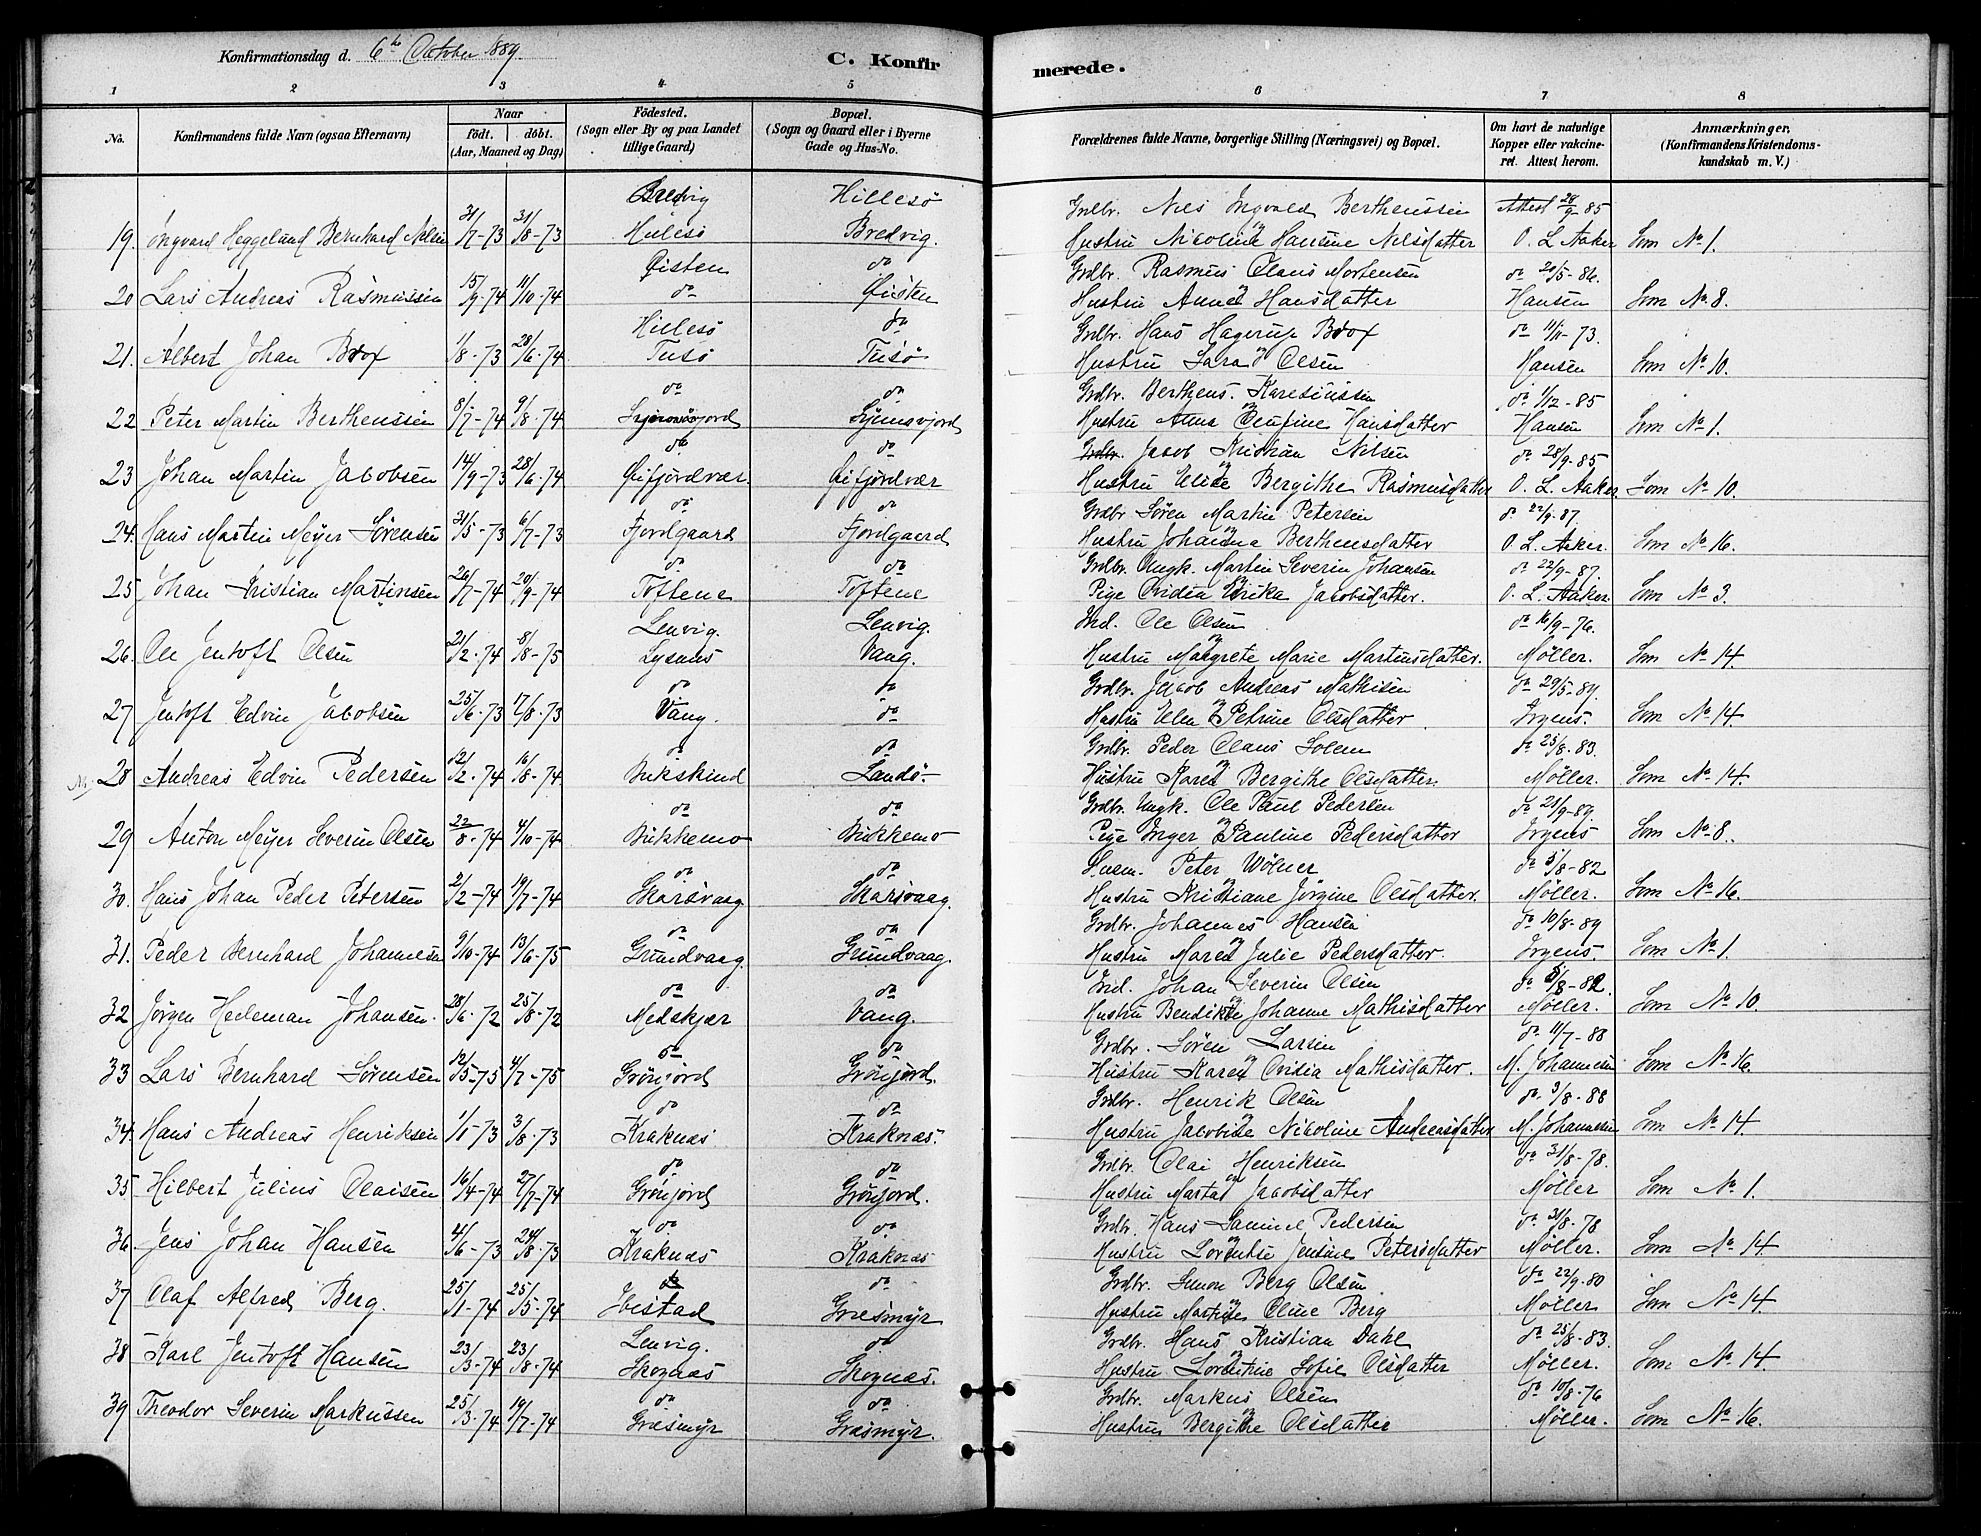 Konfirmationsdag d. 6te October 1889.
C. Konfirmerede.
1 2 3 4 5 6 7 8
No. Konfirmandens fulde Navn (ogsaa Efternavn) Naar födt. döbt. (Aar, Maaned og Dag) Födested. (Sogn eller By og paa Landet tillige Gaard) Bopæl. (Sogn og Gaard eller i Byerne Gade og Hus-No. Forældrenes fulde Navne, borgerlige Stilling (Næringsvei) og Bopæl. Om havt de naturlige Kopper eller vakcineret. Attest herom. Anmærkninger. (Konfirmandens Kristendomskundskab m. V.)
Bredvig Hillesö Grdbr. Nils Ingvald Berthenssen Attest 28/9-85
19. Ingvard Heggelund Bernhard Nilsen 31/7-73 31/8-73 Hillesö Bredvig. Hustru Nicoline Hansine Nilsdatter O. L. Aaker Som No 1.
Öisten do Grdbr. Rasmus Claus Mortensen do 20/5-86.
20 Lars Andreas Rasmussen 15/9-74 11/10-74 do Öisten Hustru Anne Hansdatter Hansen Som No 8.
Hillesö do Grdbr. Hans Hagerup Brox do 11/11-73.
21. Albert Johan Brox 1/8-73 28/6-74 Tusö Tusö Hustru Sara Olsen Hansen Som No 10.
do do Grdbr. Berthens. Karesiussen do 1/12-85
22 Peter Martin Berthenssen 8/7-74 9/8-74 Hustru Anna Olufine Hansdatter Hansen Som No 1.
do do Grdbr. Jacob Kristian Nilsen do 28/9-85
23 Johan Martin Jacobsen 14/9-73 28/6-74 Öifjordvær. Öifjordvær Hustru Elise Bergithe Rasmusdatter O. L. Aaker Som No 10.
do do Grdbr Sören Martin Petersen do 22/9-87
24. Hans Martin Meyer Sörensen 31/5-73 6/7-73 Fjordgaard Fjordgaard Hustru Johanna Berthensdatter O. L. Aaker. Som No 16.
do do Grdbr. Ungk. Martin Severin Johansen do 22/9-87.
25 Johan Kristian Martinsen 26/7-74 20/9-74 Töftene Töftene Pige Ovidia Erika Jacobsdatter. O. L. Aaker Som No 3.
Lenvig. Lenvig. Ind. Ole Olsen do 16/9-76.
26. Ole Jentoft Olsen 21/2-74 8/8-75 Lysnes Vang. Hustru Margrete Marie Martinsdatter. Möller. Som No 14
do do Grdbr. Jacob Andreas Mathisen do 29/5-89.
27 Jentoft Edvin Jacobsen 25/6-73 17/8-73 Vang. do Hustru Elen Petrine Olsdatter Irgens. Som No 14.
do do Grdbr. Peder Claus Solem do 23/8-83.
28 Andreas Edvin Pedersen 12/2-74 16/8-74 Bukskind Landö Hustru Karen Bergithe Olsdatter. Möller. Som No 14.
do do Grdbr. Ungk. Ole Paul Pedersen do 28/9-89.
29 Anton Meyer Severin Olsen 22/8-74 4/10-74 Bukkemo Bukkemo Pige Inger Pauline Pedersdatter Irgens Som No 8.
do do Husm. Peter Wölner do 5/8-82
30. Hans Johan Peder Petersen 2/2-74 19/7-74 Skarsvaag Skarsvaag. Hustru Kristiane Jörgine Olsdatter. Möller. Som No 16.
do do Grdbr. Johannes Hansen do 10/8-89
31. Peder Bernhard Johannesen 9/10-74 13/6-75 Grundvaag. Grundvaag. Hustru Maren Julie Pedersdatter. Irgens. Som No 1.
do do Ind. Johan Severin Olsen do 5/8-82.
32 Jörgen Hedeman Johansen. 28/6-72 25/8-72 Medskjær Vang. Hustru Bendikte Johanne Mathisdatter Möller. Som No 10.
do do Grdbr. Sören Larsen do 11/7-88
33 Lars Bernhard Sörensen 12/5-75 4/7-75 Grönjord Grönjord. Hustru Karen Ovidia Mathisdatter. M. Johannesen Som No 16.
do do Grdbr. Henrik Olsen do. 3/8-88
34. Hans Andreas Henriksen 1/1-73 3/8-73 Kraknæs Kraknæs. Hustru Jacobine Nicoline Andreasdatter M. Johannesen Som No 14.
do do Grdbr. Olai Henriksen do 31/8-78.
35 Hilbert Julius Olaisen 16/4-74 27/7-74 Grönjord Grönjord. Hustru Marta Jacobsdatter Möller Som No 1.
do do Grdbr. Hans Samuel Pedersen do 31/8-78
36. Jens Johan Hansen 4/6-73 24/8-73 Kraknæs Kraknæs Hustru Lorentse Jensine Petersdatter Möller. Som No 14
do do Grdbr. Simon Berg Olsen do 22/9-80
37 Olaf Alfred Berg. 25/1-74 25/5-74 Ibestad Græsmyr Hustru Oline Berg Möller Som No 14
Lenvig. do Grdbr. Hans Kristian Dahl do 25/8-83.
38 Karl Jentoft Hansen 23/3-74 23/8-74 Skognæs Skognæs. Hustru Lorentine Sofie Olsdatter Möller. Som No 14
do do Grdbr. Markus Olsen do 10/8-76
39 Theodor Severin Markussen 25/3-74 19/7-74 Græsmyr Græsmyr. Hustru Bergithe Olsdatter Möller. Som No 16.